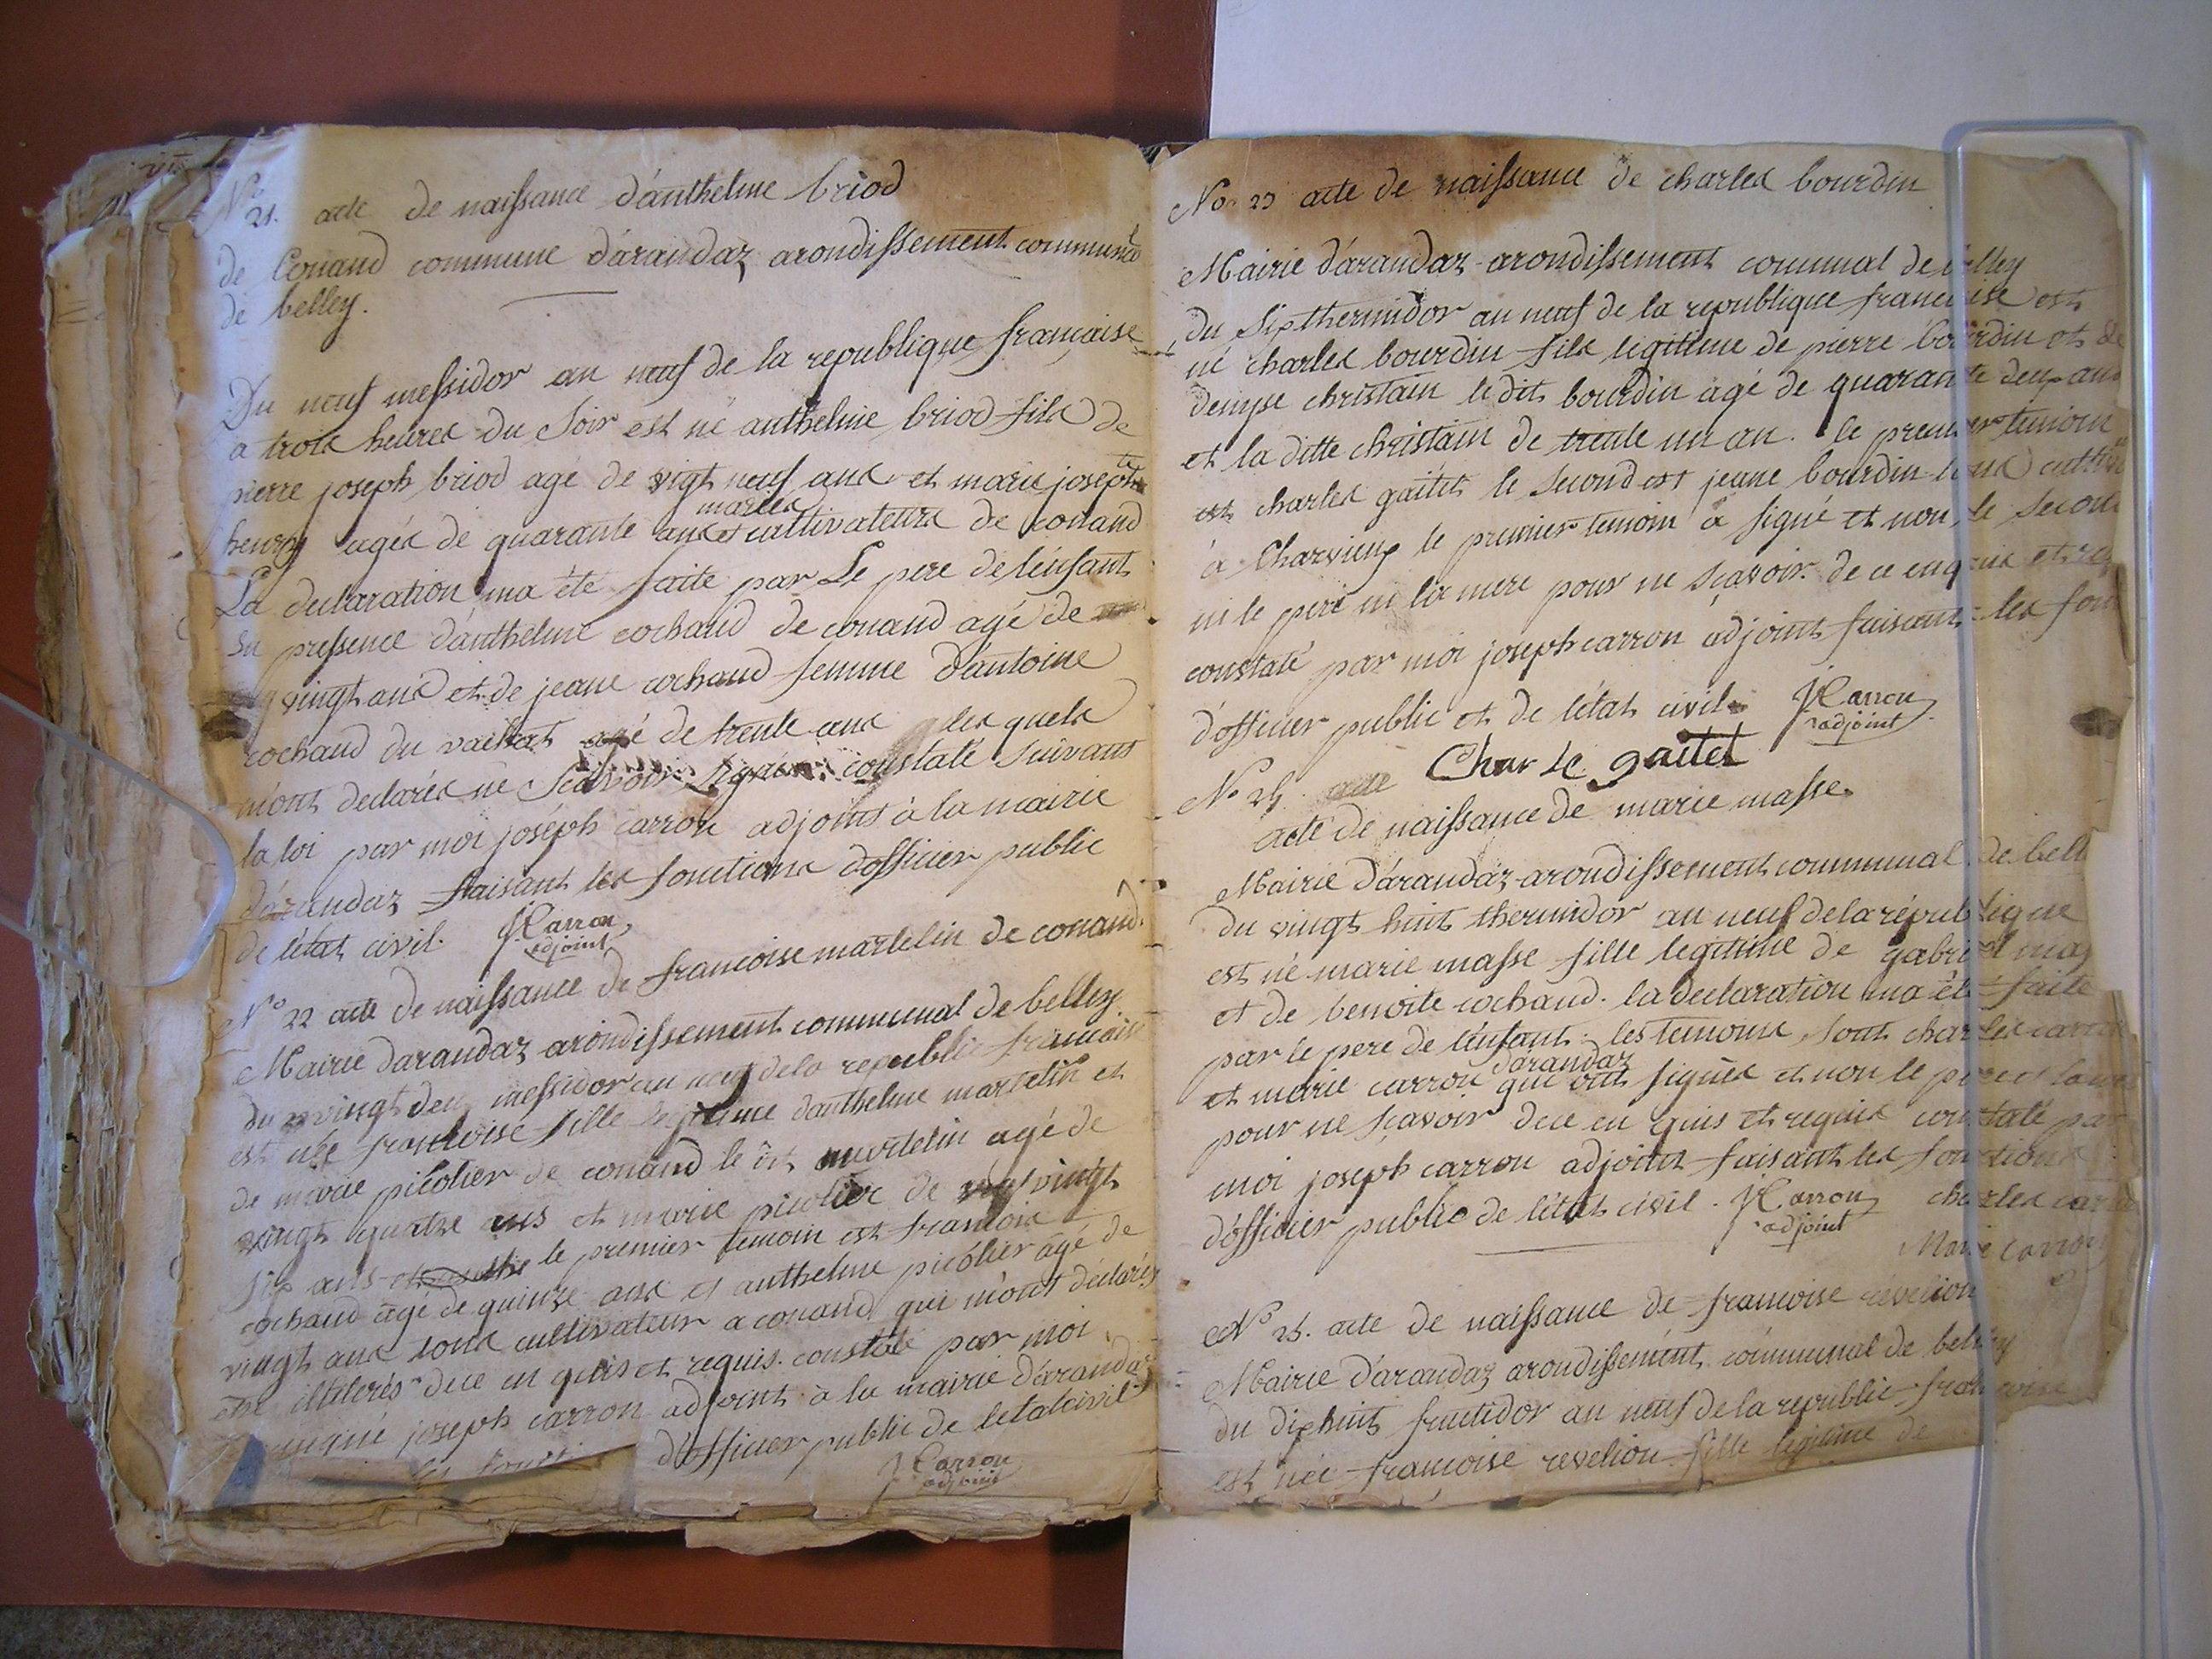 No
21. acte de naissance d'anthelme briod
de Conand commune d'arandaz arondissement communal
de belley.
Du neuf messidor an neuf de la republique française
a trois heures du Soir est né anthelme briod fils de
pierre joseph briod agé de vigt neuf ans et marie josephte
henry agés de quarante ans et cultivateurs de conand
mariés
La declaration ma été faite par Le pere de l'enfant
En pressence d'anthelme cochaud de conand agé de
vingt ans et de jeane cochaud femme d'antoine
cochaud du vachat agé de trente ans les quels
m'ont declarés ne Scavoir Signer constaté suivant
la loi par moi joséph carron adjoint à la mairie
d'arandaz faisant les fonctions d'officier public
de l'état civil. J Carron
adjoint
No 22 acte de naissance de francoise martelin de conand.
Mairie darandaz arondissement communal de belley
du vingt deux messidor an neuf de la republic francoise
est née francoise fille legitime danthelme martelin et
de marie picolier de conand le dit martelin agé de
vingt quatre ans et marie picolier de vingt
six ans le premier temoin est francois
cochaud agé de quinze ans et anthelme picolier agé de
vingt ans tous cultivateur a conand qui m'ont déclarés
etre illiterés dece en quis et requis. constaté par moi
joseph carron adjoint à la mairie d'arandaz
d'officier public de letat civil
J Carron
adjoint
No 23 acte de naissance de charles bourdin
Mairie d'arandaz arondissement comunal de belley
du Six thermidor an neuf de la republique francoise est
né charles bourdin fils legitime de pierre bourdin et de
denyse christain le dit bourdin agé de quarante deux ans
et la ditte christain de trente un an. le premier temoin
est charles gaitet le second est jeane bourdin tous
à Charvieux le premier temoin a signé et non le second
ni le pere ni la mere pour ne sçavoir. de ce enquis et
constaté par moi joseph carron adjoint faisant les
d'officier public et de l'état civil J Carron
adjoint
Charle gaitet
No 24. acte
acte de naissance de marie masse
Mairie d'arandaz arondissement communal de bell
du vingt huit thermidor an neuf de la république
est né marie masse fille legitime de gabriel mas
et de benoite cochaud. la declaration ma été faite
par le pere de l'enfant. les temoins sont charles carron
darandaz
et marie carron qui ont signés et non le pere et la
pour ne sçavoir dece en quis et requis constaté par
moi joseph carron adjoint faisant les fonctions
d'officier public de l'état civil. J Carron charles carron
adjoint
Marie carron
No 25. acte de naissance de francoise revelion
Mairie d'arandaz arondissement communal de belley
du dix huit fructidor an neuf de la republic francoise
est née francoise revelion fille legitime de